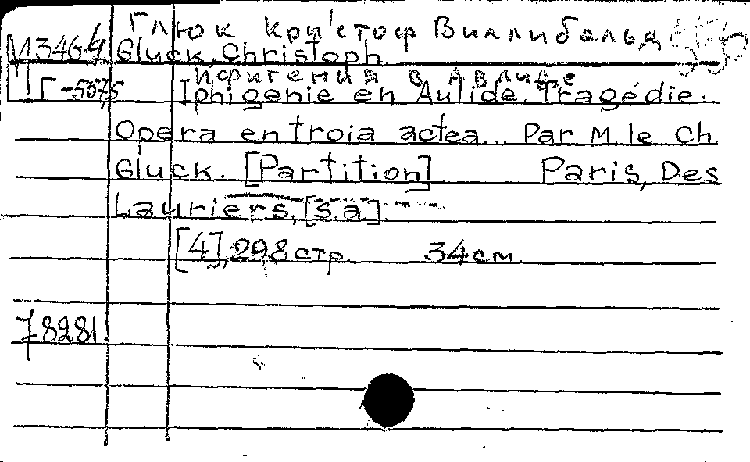 Глюк Крістоф Виллибальд
М346.4 Gluck, Christoph
Ифигения в Авлиде
Г-5075 Iphigenie en Aulide. Tragédie-
Opera en troia actea... Par M. le Ch.
Gluck. [Partition] Paris, Des
Lauriers, [s.a.]
[4], 298 стр. 34 см.
78281